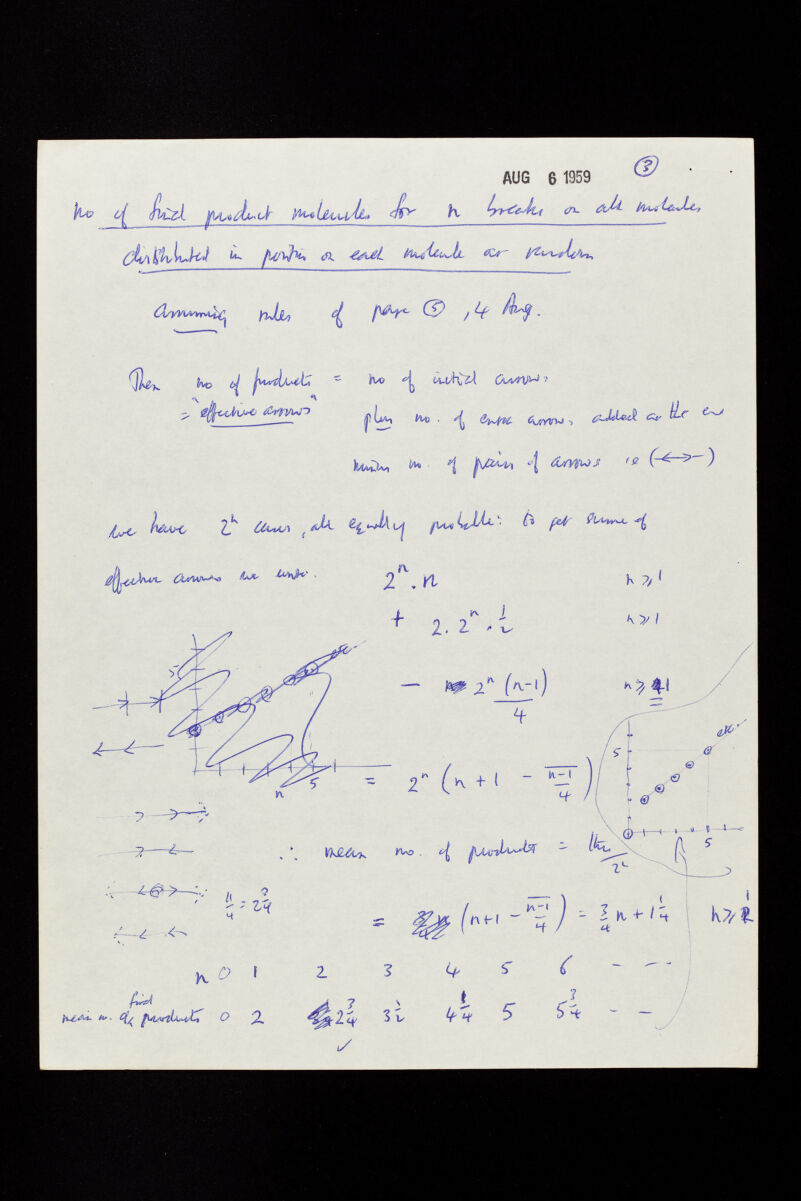 AUG 6 1959
③
No of final product molecules for n breaks on all molecules
distributed in position on each molecule at random
assuming rules of page ⑤, 4 Aug.
Then no of products = no of initial arrows
= "effective arrows" plus no. of extra arrows added at the end
minus no. of pairs of arrows ie (←→)
we have 2ⁿ cases, all equally probable: to get sum of
effective arrows we write.
2ⁿ . n n ⩾ 1
+ 2. 2ⁿ . ½ n ⩾ 1
− 2ⁿ (n−1)/4 n ⩾ 1
5
etc.
n 5
5
etc.
5
= 2ⁿ (n + 1 − (n−1)/4)
∴ mean no. of products = this/2ⁿ
11/4 = 2¾
= (n+1 − (n−1)/4) = ¾ n + 1¼ n ⩾ 1
n 0 1 2 3 4 5 6 - - -
mean no. of final products 0 2 2¾ 3½ 4¼ 5 5¾ - -
✓